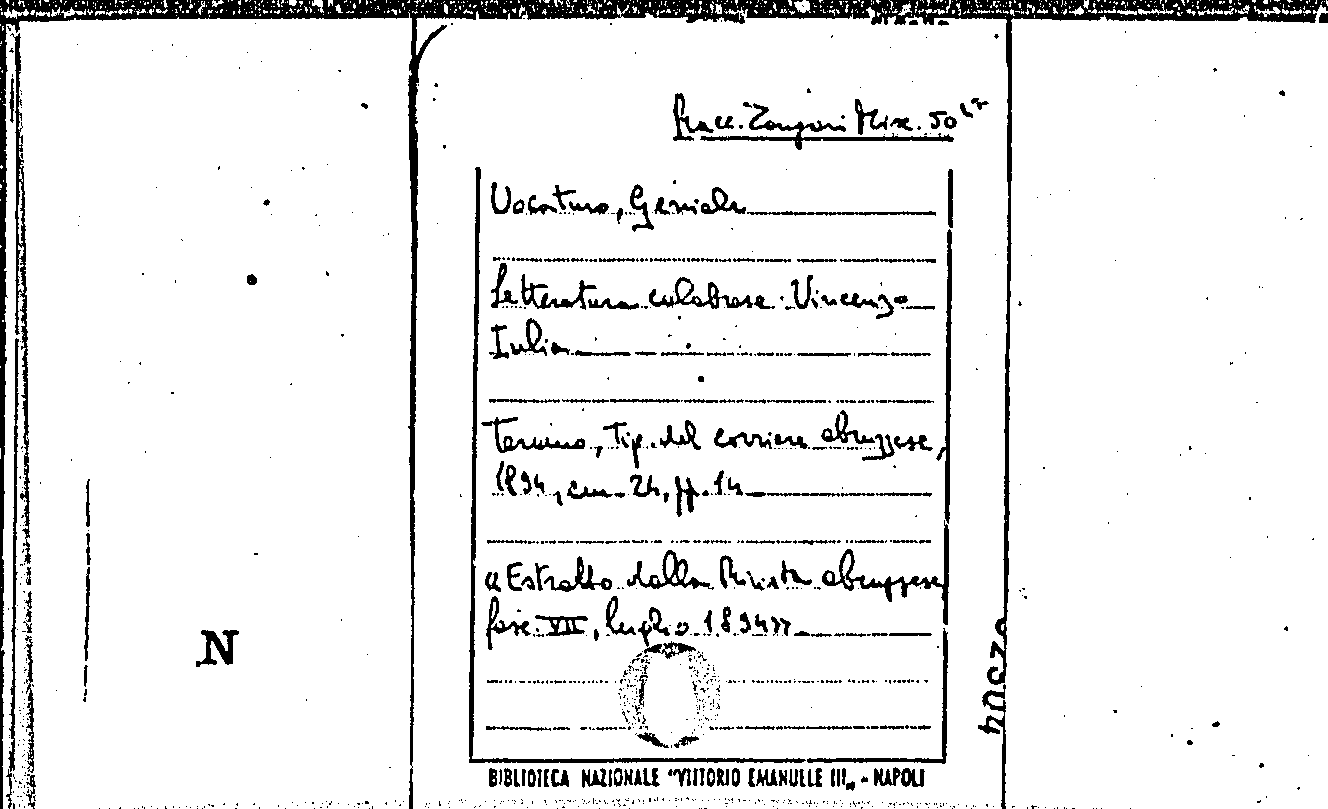 Racc. Zangari Misc. 50
Vocaturo, Geniale
Letteratura calabrese. Vincenzo
Iulia
Teramo, Tip. del corriere abruzzese,
1894, cm. 24, pp. 14
"Estratto dalla Rivista abruzzese,
fasc. VII, luglio 1894"
N
BIBLIOTECA NAZIONALE "VITTORIO EMANUELLE III„ - NAPOLI